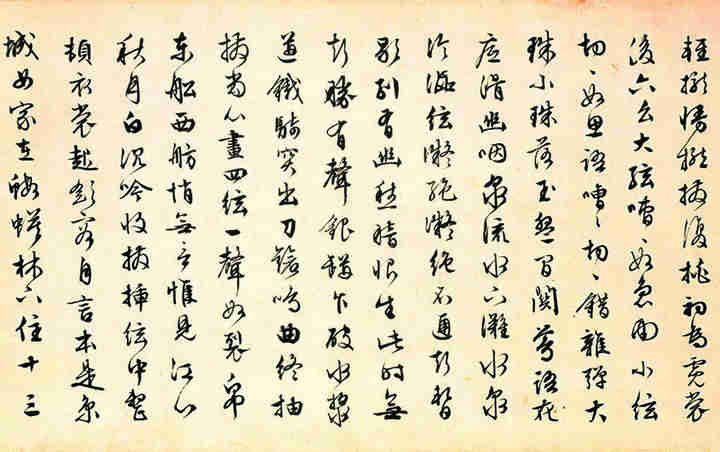 輕攏慢撚抹復挑初為霓裳
後六幺大弦嘈〻如急雨小弦
切〻如思語嘈〻切〻錯雜彈大
珠小珠落玉盤間關鶯語花
底滑幽咽泉流水下灘水泉
冷澀弦凝絕凝絕不通聲暫
歇別有幽愁暗恨生此時無
聲勝有聲銀瓶乍破水漿
迸鐵騎突出刀鎗鳴曲終抽
撥當心畫四弦一聲如裂帛
東船西舫悄無言惟見江心
秋月白沉吟收撥插弦中整
頓衣裳起斂容自言本是京
城女家在蝦蟆林下住十三